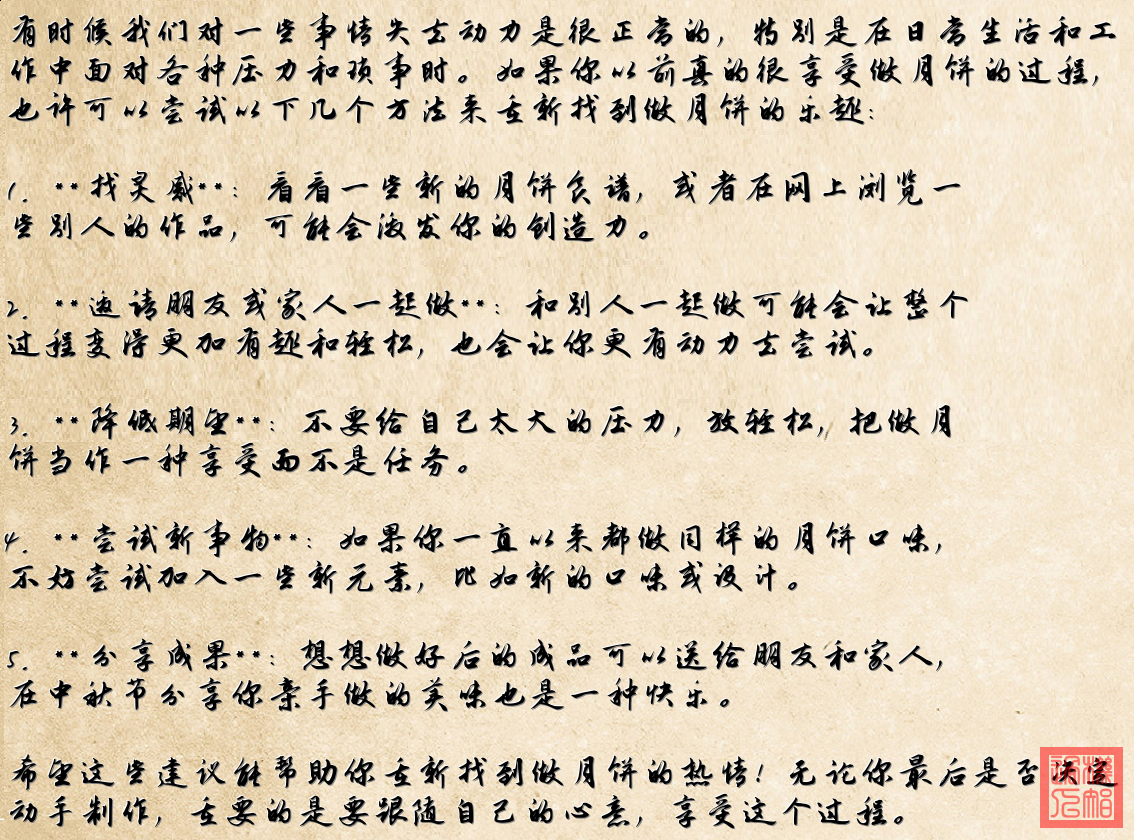 有时候我们对一些事情失去动力是很正常的，特别是在日常生活和工
作中面对各种压力和琐事时。如果你以前真的很享受做月饼的过程，
也许可以尝试以下几个方法来重新找到做月饼的乐趣：
1. **找灵感**：看看一些新的月饼食谱，或者在网上浏览一
些别人的作品，可能会激发你的创造力。
2. **邀请朋友或家人一起做**：和别人一起做可能会让整个
过程变得更加有趣和轻松，也会让你更有动力去尝试。
3. **降低期望**：不要给自己太大的压力，放轻松，把做月
饼当作一种享受而不是任务。
4. **尝试新事物**：如果你一直以来都做同样的月饼口味，
不妨尝试加入一些新元素，比如新的口味或设计。
5. **分享成果**：想想做好后的成品可以送给朋友和家人，
在中秋节分享你亲手做的美味也是一种快乐。
希望这些建议能帮助你重新找到做月饼的热情！无论你最后是否决定
动手制作，重要的是要跟随自己的心意，享受这个过程。